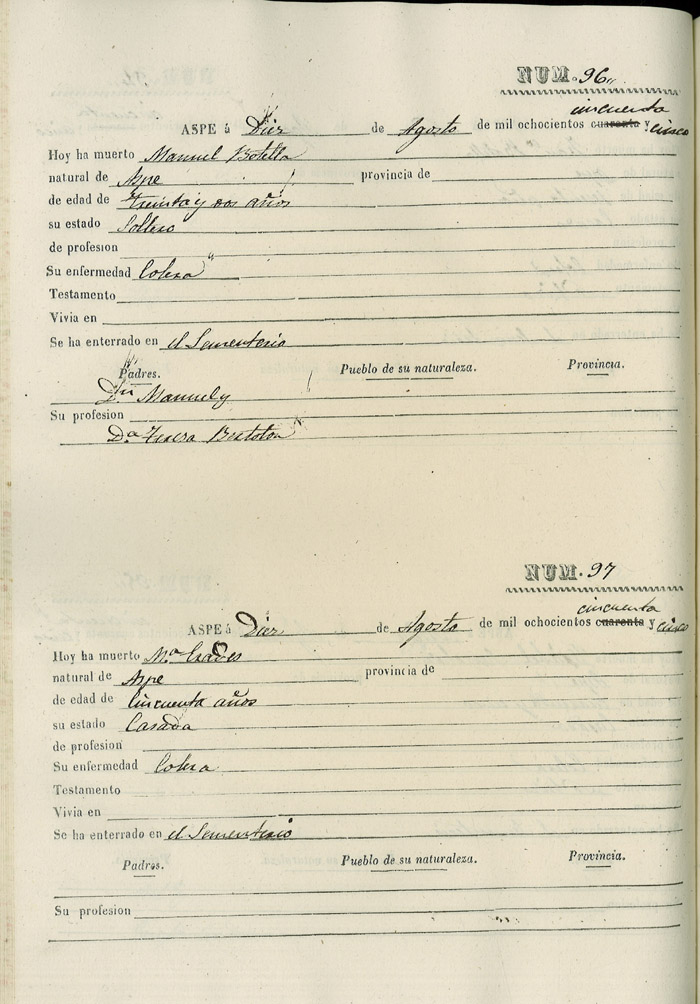 NUM. 96
cincuenta
ASPE á Diez de Agosto de mil ochocientos cuarenta y cinco
Hoy ha muerto Manuel Botella
natural de Aspe provincia de
de edad de treinta y dos años
su estado Soltero
de profesion
Su enfermedad Colera
Testamento
Vivia en
Se ha enterrado en el Sementerio
Padres. Pueblo de su naturaleza. Provincia.
Dn Manuel y
Su profesion
Da Teresa
NUM. 97
cincuenta
ASPE á Diez de Agosto de mil ochocientos cuarenta y cinco
Hoy ha muerto Ma
natural de Aspe provincia de
de edad de Cincuenta años
su estado Casada
de profesion
Su enfermedad Colera
Testamento
Vivia en
Se ha enterrado en el Sementerio
Padres. Pueblo de su naturaleza. Provincia.
Su profesion